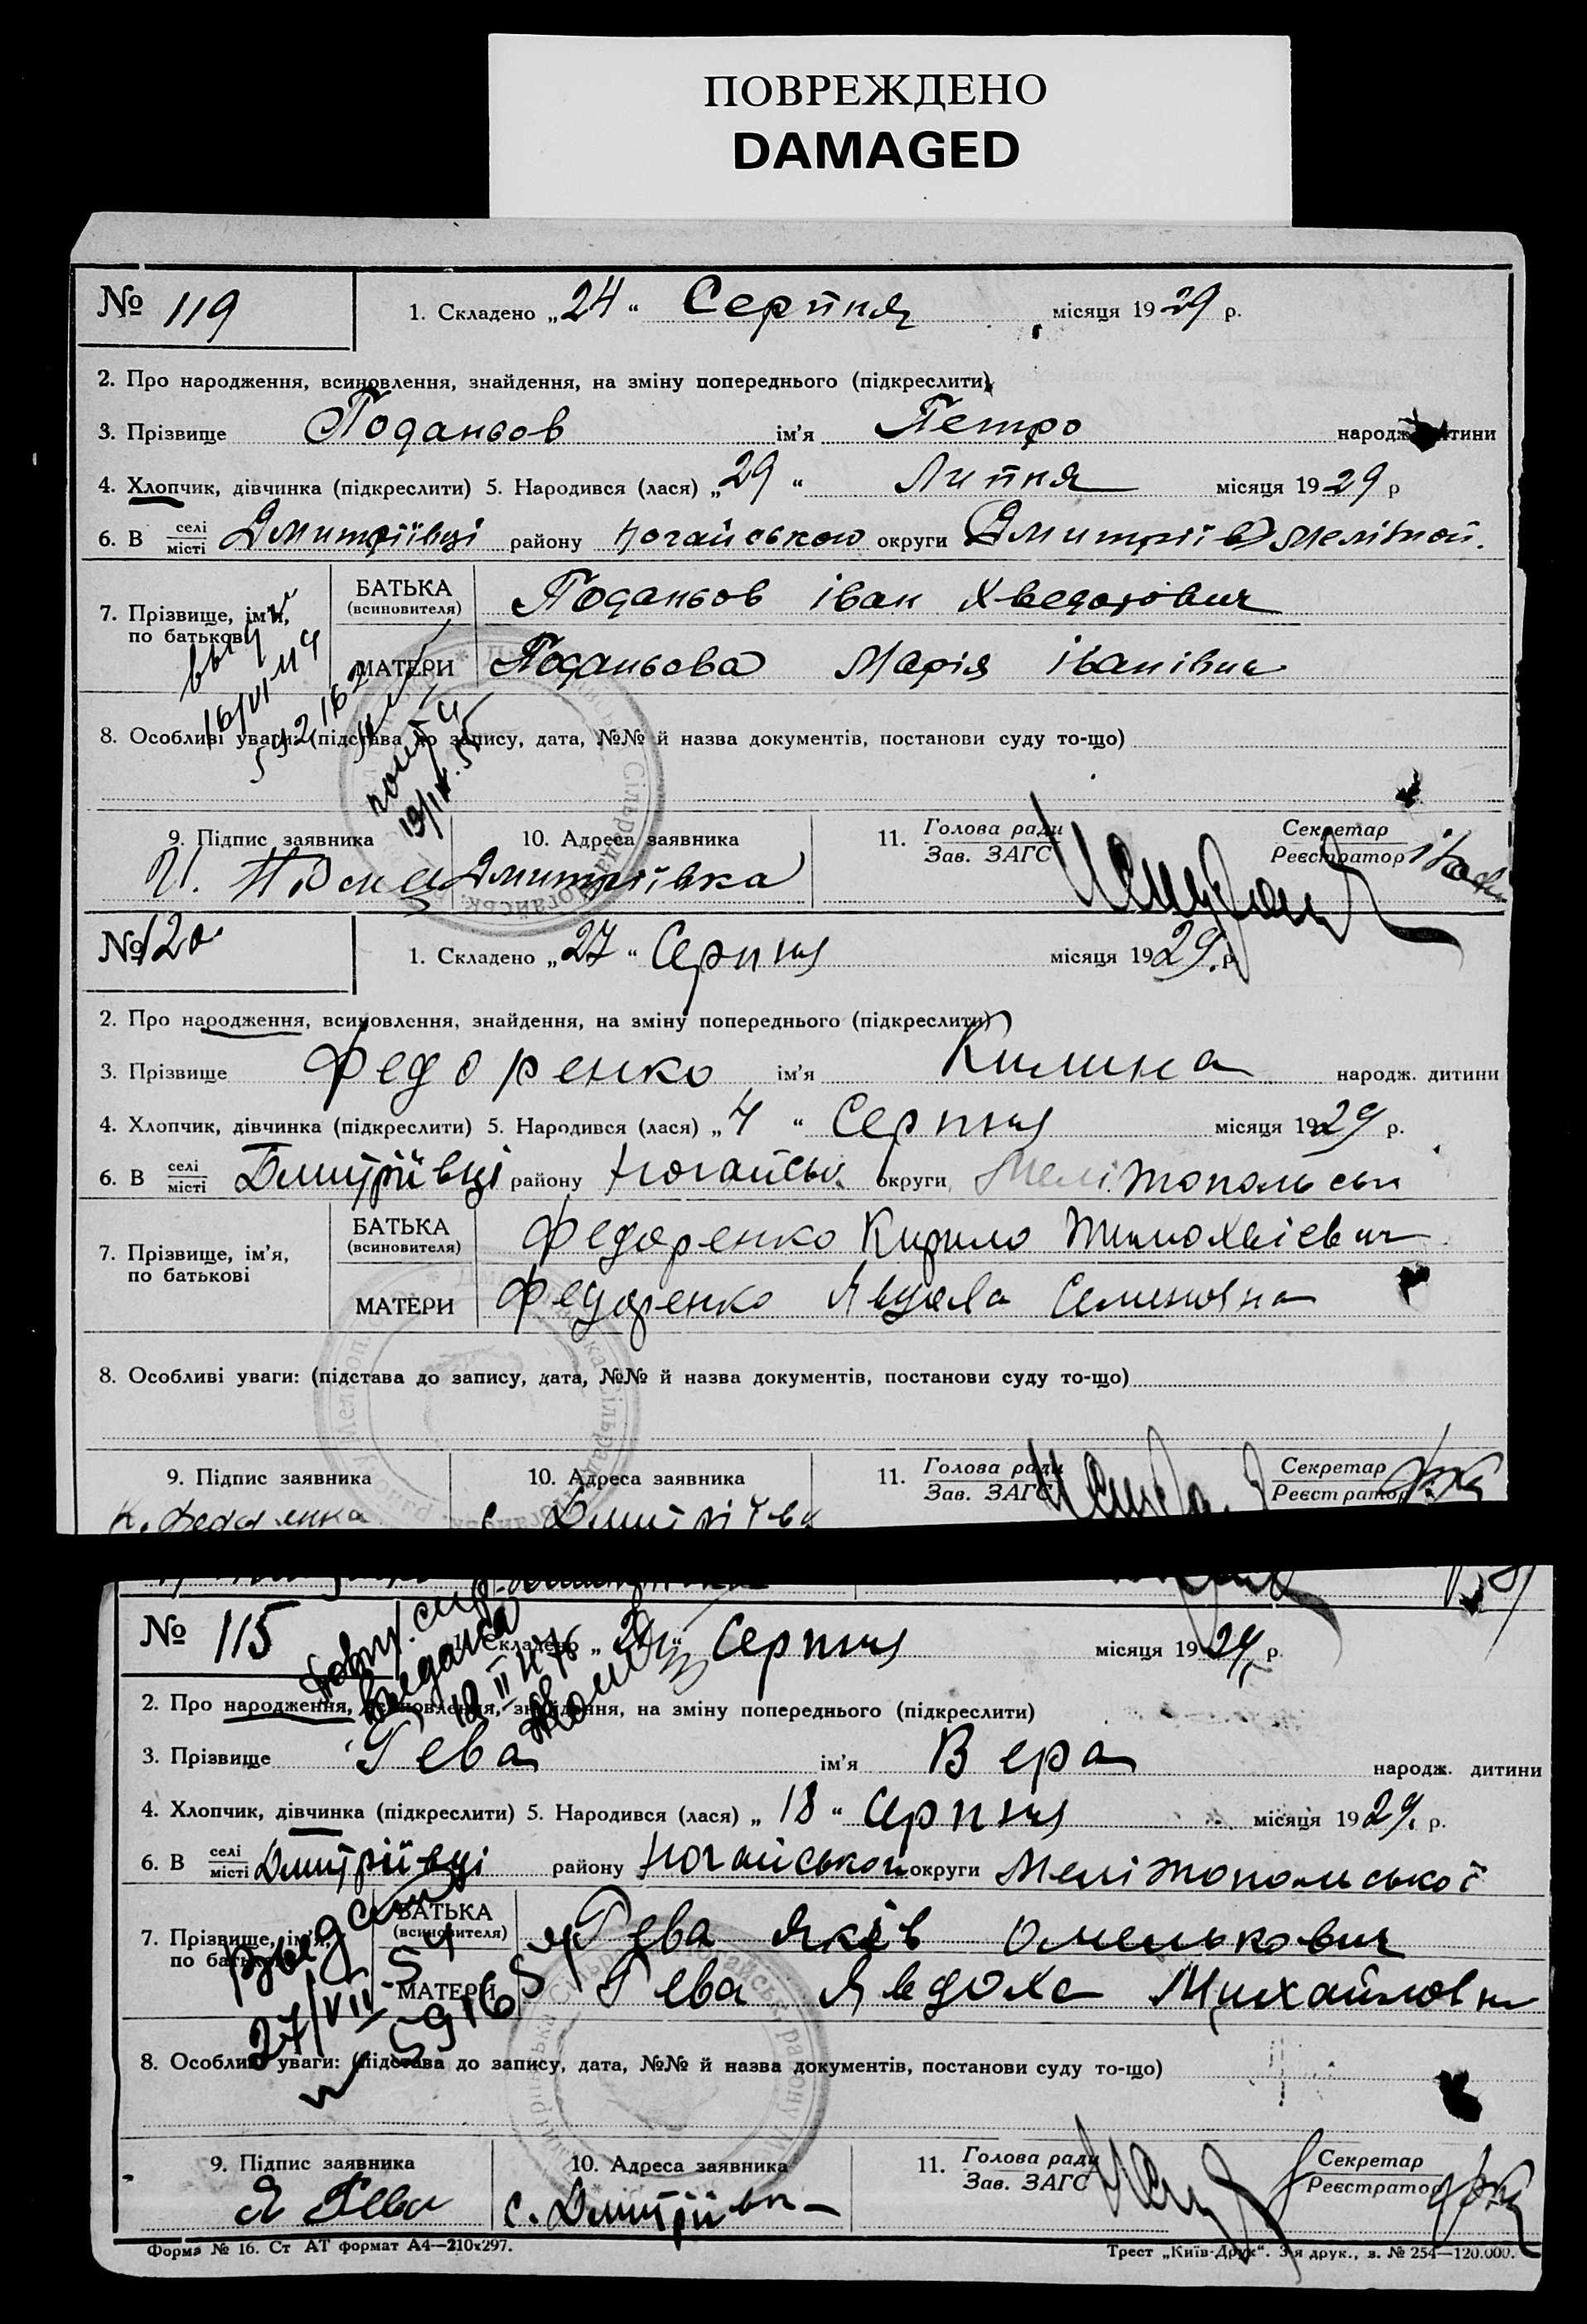 ПОВРЕЖДЕНО
DAMAGED
№ 119
1. Складено „24“ Серпня місяця 1929 р.
2. Про народження, всиновлення, знайдення, на зміну попереднього (підкреслити)
3. Прізвище Поданьов ім'я Петро народж. дитини
4. Хлопчик, дівчинка (підкреслити) 5. Народився (лася) „29“ Липня місяця 1929 р
6. В селі місті Дмитріївці району Ногайською округи
7. Прізвище, ім'я, по батькові
БАТЬКА (всиновителя) Поданьов Іван Хведорович
МАТЕРИ Поданьова Марія Іванівна
8. Особливі уваги: (підстава до запису, дата, №№ й назва документів, постанови суду то-що)
9. Підпис заявника
10. Адреса заявника Дмитріівка
11. Голова ради Зав. ЗАГС
Секретар Реєстратор
№ 120
1. Складено „27“ Серпня місяця 1929. р
2. Про народження, всиновлення, знайдення, на зміну попереднього (підкреслити)
3. Прізвище Федоренко ім'я Килина народж. дитини
4. Хлопчик, дівчинка (підкреслити) 5. Народився (лася) „4“ Серпня місяця 1929 р.
6. В селі місті Дмитріївці району Ногайськ. округи Мелітопольськ
7. Прізвище, ім'я, по батькові
БАТЬКА (всиновителя) Федоренко Кирило Тимохвієвич
МАТЕРИ Федоренко Семеновна
8. Особливі уваги: (підстава до запису, дата, №№ й назва документів, постанови суду то-що)
9. Підпис заявника
10. Адреса заявника
11. Голова ради Зав. ЗАГС
Секретар Реєстратор
№ 115
1. Складено Серпня місяця 1929 р.
2. Про народження, всиновлення, знайдення, на зміну попереднього (підкреслити)
3. Прізвище Гева ім'я Вера народж. дитини
4. Хлопчик, дівчинка (підкреслити) 5. Народився (лася) „18“ Серпня місяця 1929. р.
6. В селі місті Дмитріївці району Ногайської округи Мелітопольської
7. Прізвище, ім'я, по батькові
БАТЬКА (всиновителя) Гева Яків Омелькович
МАТЕРИ Гева Явдоха Михайловна
8. Особливі уваги: (підстава до запису, дата, №№ й назва документів, постанови суду то-що)
9. Підпис заявника Я Гева
10. Адреса заявника с. Дмитріївка
11. Голова ради Зав. ЗАГС
Секретар Реєстратор
Форма № 16. Ст АТ формат А4—210х297.
Трест „Київ-Друк“. 3-я друк., з. № 254—120.000.